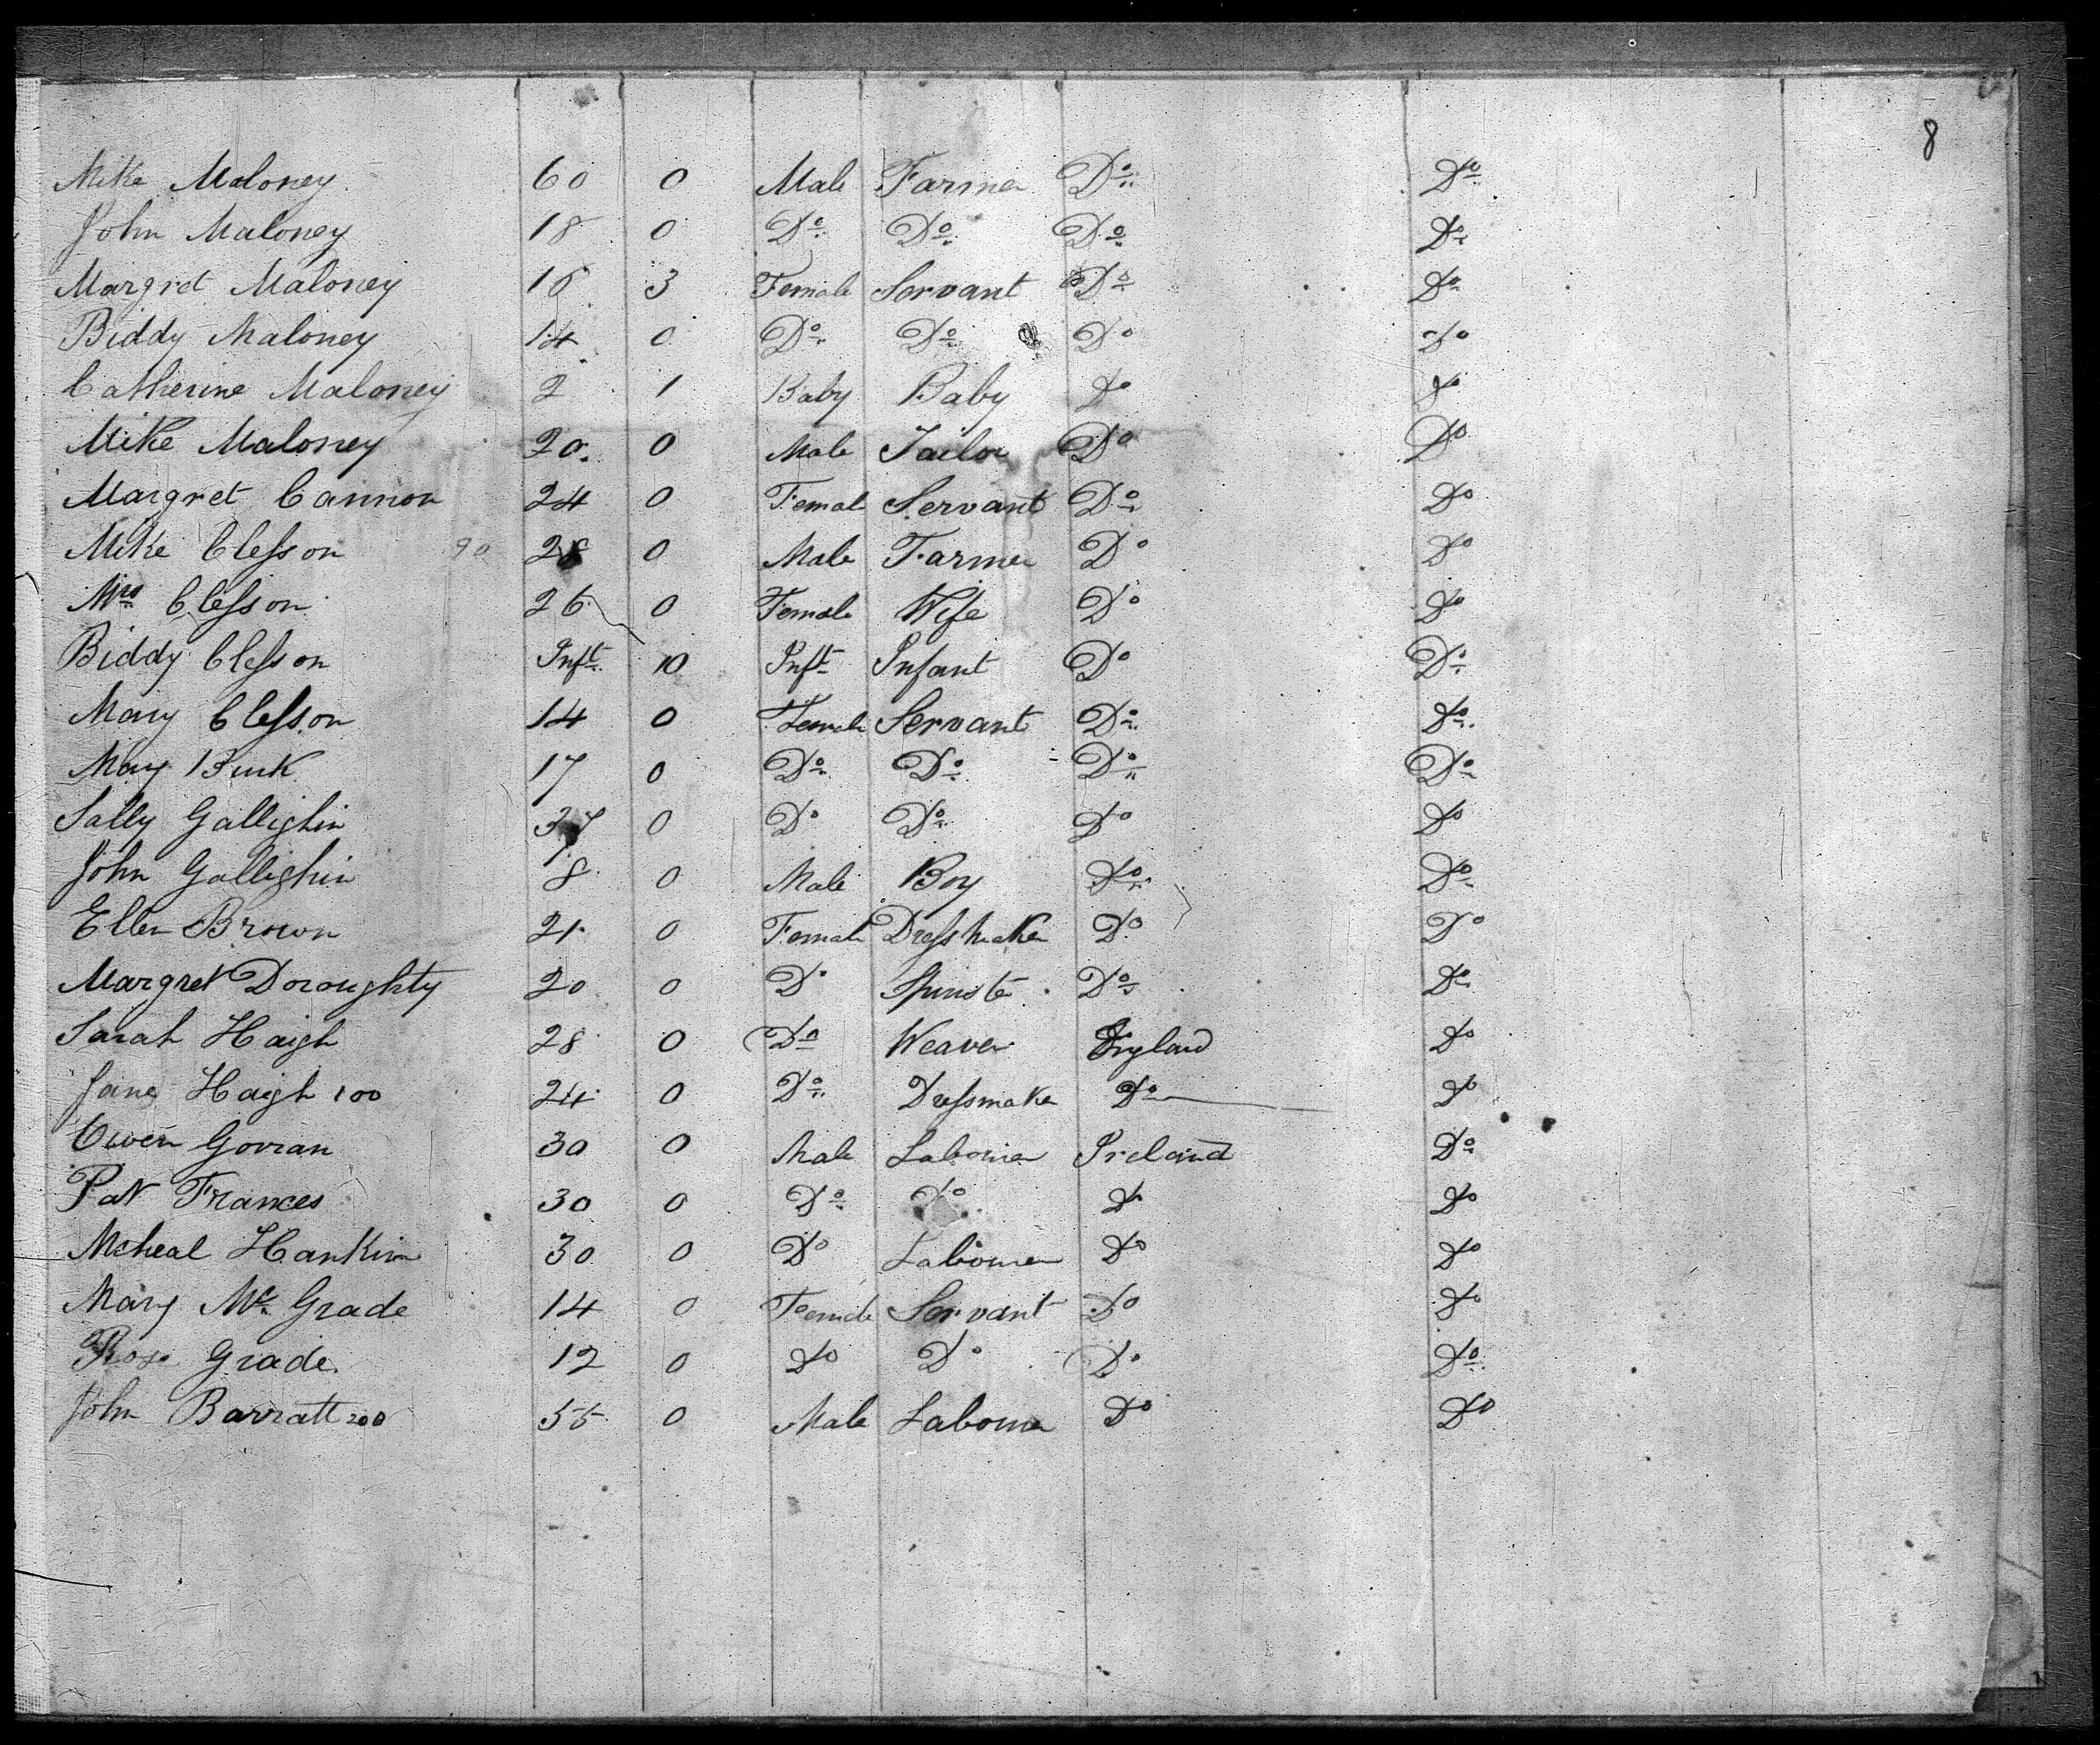 8
Mike Maloney 60 0 Male Farmer Do Do
John Maloney 18 0 Do Do Do Do
Margret Maloney 16 3 Female Servant Do Do
Biddy Maloney 14 0 Do Do Do Do
Catherine Maloney 2 1 Baby Baby Do Do
Mike Maloney 20 0 Male Tailor Do Do
Margret Cannon 24 0 Female Servant Do Do
Mike Clesson 90 28 0 Male Farmer Do Do
Mrs Clesson 26 0 Female Wife Do Do
Biddy Clesson Inft 10 Inft Infant Do Do
Mary Clesson 14 0 Female Servant Do Do
Mary Burk 17 0 Do Do Do Do
Sally Gallighin 37 0 Do Do Do Do
John Gallighin 8 0 Male Boy Do Do
Ellen Brown 21 0 Female Dressmaker Do Do
Margret Doroughty 20 0 Do Spinster Do Do
Sarah Haigh 28 0 Do Weaver England Do
Jane Haigh 100 24 0 Do Dressmaker Do Do
Owen Govran 30 0 Male Labourer Ireland Do
Pat Frances 30 0 Do Do Do Do
Micheal Hankin 30 0 Do Labourer Do Do
Mary Mc Grade 14 0 Female Servant Do Do
Rose Grade 12 0 Do Do Do Do
John Barratt 200 55 0 Male Labourer Do Do